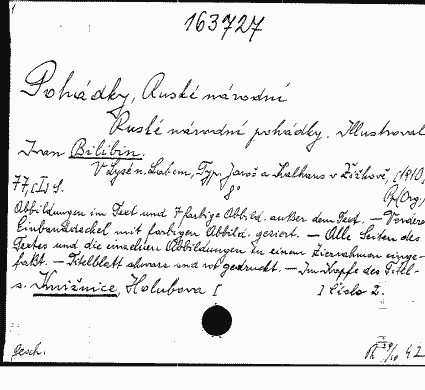 163727
Pohádky, Ruské národní
Ruské národní pohádky. Illustroval
Ivan Bilibin.
V Lysé n. Labem, Typ. Jaroš a Kalhous v Žižkově, [1910]
77, [I] S. 8° Pf(Org)
Abbildungen im Text und 7 farbige Abbild. außer dem Text. – Vorderer
Einbanddeckel mit farbigen Abbild. geziert. – Alle Seiten des
Textes und die einzelnen Abbildungen in einem Zierrahmen einge-
faßt. – Titelblatt schwarz und rot gedruckt. – Im Kopfe des Titel-
s. Knižnice, Holubova [ ] Číslo 2.
Gesch.
42